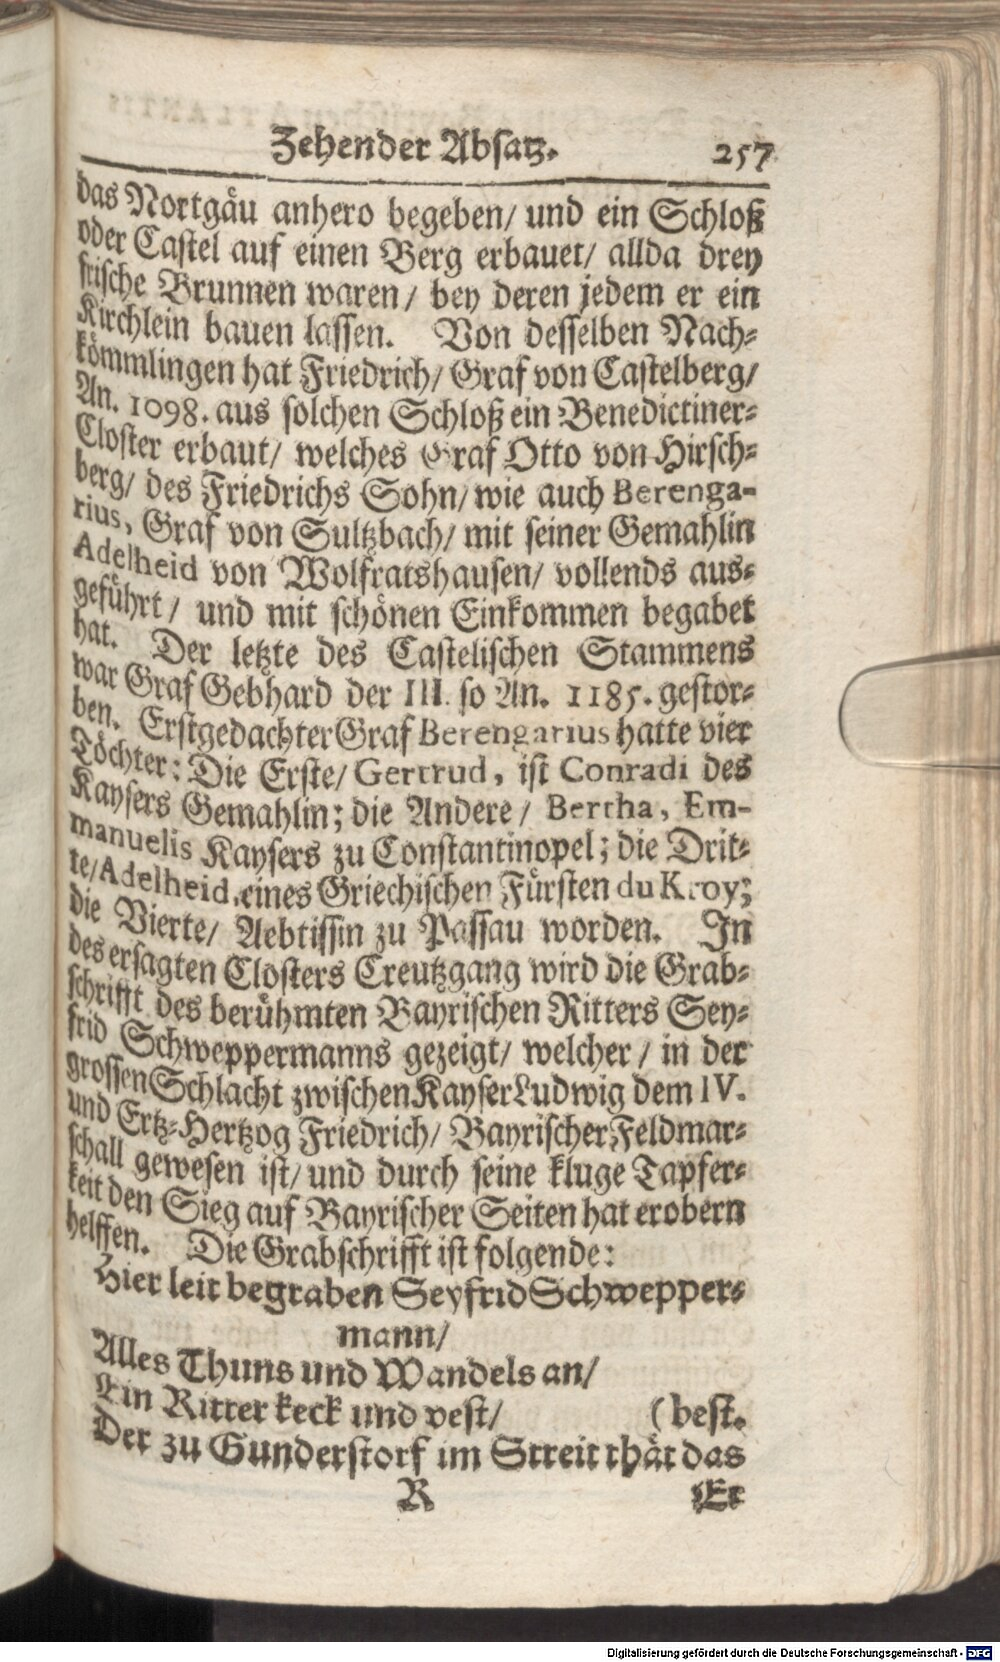 Zehender Absatz. 257
das Nortgäu anhero begeben/ und ein Schloß
oder Castel auf einen Berg erbauet/ allda drey
frische Brunnen waren/ bey deren jedem er ein
Kirchlein bauen lassen. Von desselben Nach-
kömmlingen hat Friedrich/ Graf von Castelberg/
An. 1098. aus solchen Schloß ein Benedictiner-
Closter erbaut/ welches Graf Otto von Hirsch-
berg/ des Friedrichs Sohn/ wie auch Berenga-
rius, Graf von Sultzbach/ mit seiner Gemahlin
Adelheid von Wolfratshausen/ vollends aus-
geführt/ und mit schönen Einkommen begabet
hat. Der letzte des Castelischen Stammens
war Graf Gebhard der III. so An. 1185. gestor-
ben. Erstgedachter Graf Berengarius hatte vier
Töchter: Die Erste/ Gertrud, ist Conradi des
Kaysers Gemahlin; die Andere/ Bertha, Em-
manuelis Kaysers zu Constantinopel; die Drit-
te/ Adelheid, eines Griechischen Fürsten du Kroy;
die Vierte/ Aebtissin zu Passau worden. In
des ersagten Closters Creutzgang wird die Grab-
schrifft des berühmten Bayrischen Ritters Sey-
frid Schweppermanns gezeigt/ welcher/ in der
grossen Schlacht zwischen Kayser Ludwig dem IV.
und Ertz-Hertzog Friedrich/ Bayrischer Feldmar-
schall gewesen ist/ und durch seine kluge Tapfer-
keit den Sieg auf Bayrischer Seiten hat erobern
helffen. Die Grabschrifft ist folgende:
Hier leit begraben Seyfrid Schwepper-
mann/
Alles Thuns und Wandels an/
Ein Ritter keck und vest/ (best.
Der zu Gunderstorf im Streit thät das
R Er
Digitalisierung gefördert durch die Deutsche Forschungsgemeinschaft - DFG